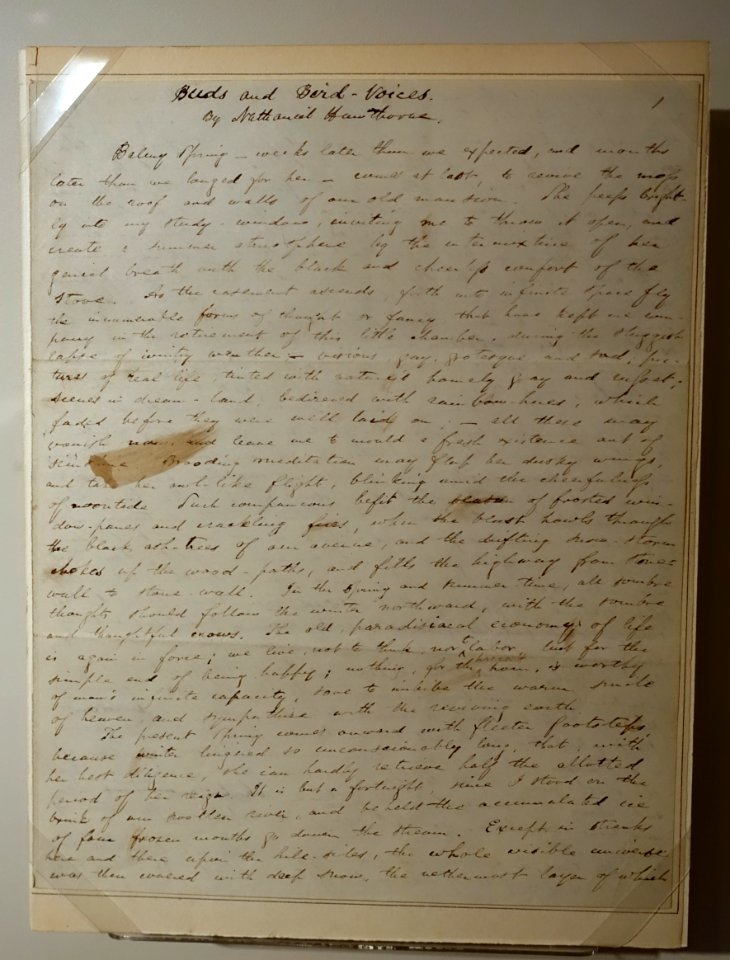 Buds and Bird-Voices.
1
By Nathaniel Hawthorne.
Balmy Spring — weeks later than we expected, and months
later than we longed for her — comes at last, to revive the moss
on the roof and walls of our old mansion. She peeps bright-
ly into my study-window, inviting me to throw it open, and
create a summer atmosphere by the intermixture of her
genial breath with the black and cheerless comfort of the
stove. As the casement ascends, forth into infinite space fly
the innumerable forms of thought or fancy, that have kept me com-
pany in the retirement of this little chamber, during the sluggish
lapse of wintry weather — visions, gay, grotesque, and sad; pic-
tures of real life, tinted with nature's homely gray and russet;
scenes in dream-land, bedizened with rainbow-hues, which
faded before they were well laid on; — all these may
vanish now, and leave me to mould a fresh existence out of
sunshine. Brooding meditation may flap her dusky wings,
and take her owl-like flight, blinking amid the cheerfulness
of noontide. Such companions befit the season of frosted win-
dow-panes and crackling fires, when the blast howls through
the black ash-trees of our avenue, and the drifting snow-storm
chokes up the wood-paths, and fills the highway from stone-
wall to stone-wall. In the spring and summer time, all sombre
thoughts should follow the winter northward, with the sombre
and thoughtful crows. The old, paradisiacal economy of life
is again in force; we live, not to think, nor to labor, but for the
simple end of being happy; nothing, for the present hour, is worthy
of man's infinite capacity, save to imbibe the warm smile
of heaven, and sympathize with the reviving earth.
The present Spring comes onward with fleeter footsteps,
because winter lingered so unconscionably long, that, with
her best diligence, she can hardly retrieve half the allotted
period of her reign. It is but a fortnight, since I stood on the
brink of our swollen river, and beheld the accumulated ice
of four frozen months go down the stream. Except in streaks
here and there upon the hill-sides, the whole visible universe
was then covered with deep snow, the nethermost layer of which